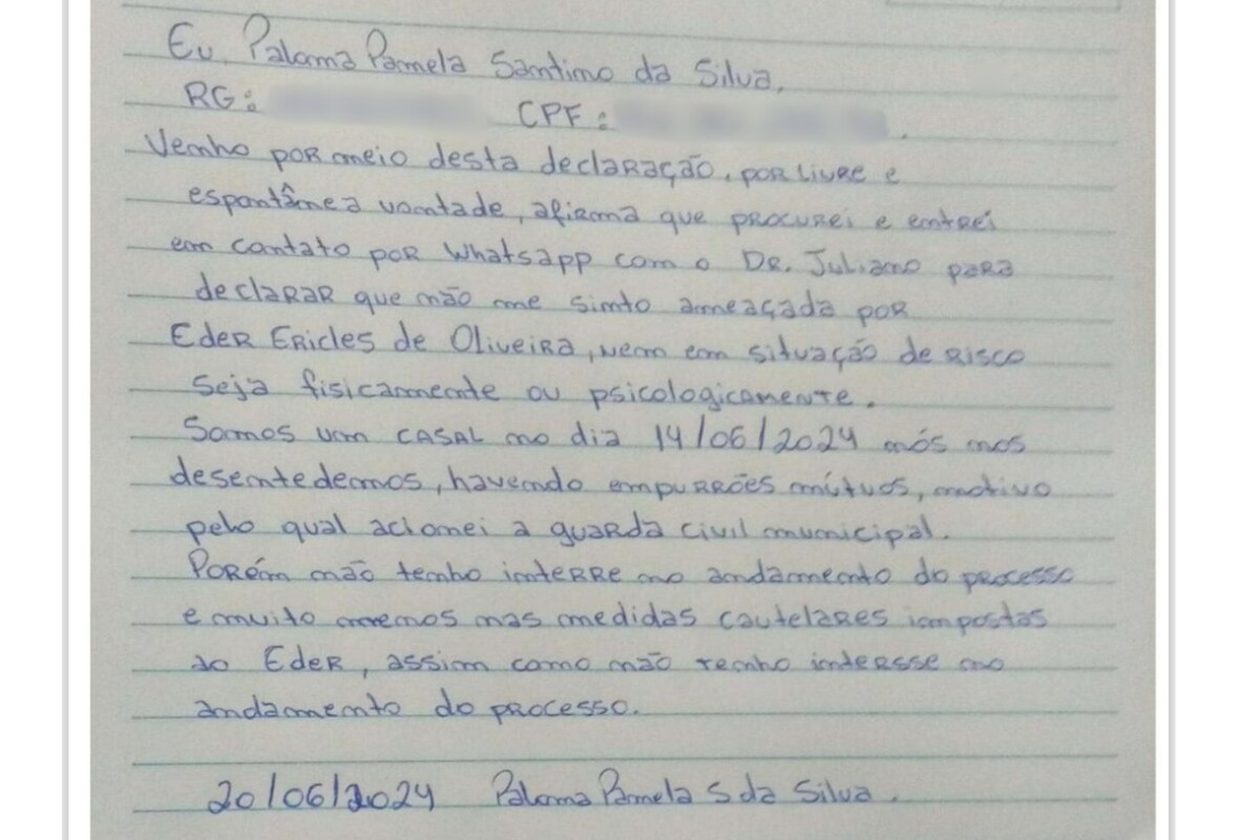 Eu, Paloma Pamela Santino da Silva,
RG: CPF: .
Venho por meio desta declaração, por livre e
espontânea vontade, afirma que procurei e entrei
em contato por Whatsapp com o Dr. Juliano para
declarar que não me sinto ameaçada por
Eder Ericles de Oliveira, nem em situação de risco
Seja fisicamente ou psicologicamente.
Somos um CASAL no dia 14/06/2024 nós nos
desentedemos, havendo empurrões mútuos, motivo
pelo qual acionei a guarda civil municipal.
Porém não tenho interre no andamento do processo
e muito menos nas medidas cautelares impostas
ao Eder, assim como não tenho intersse no
andamento do processo.
20/06/2024 Paloma Pamela S da Silva.